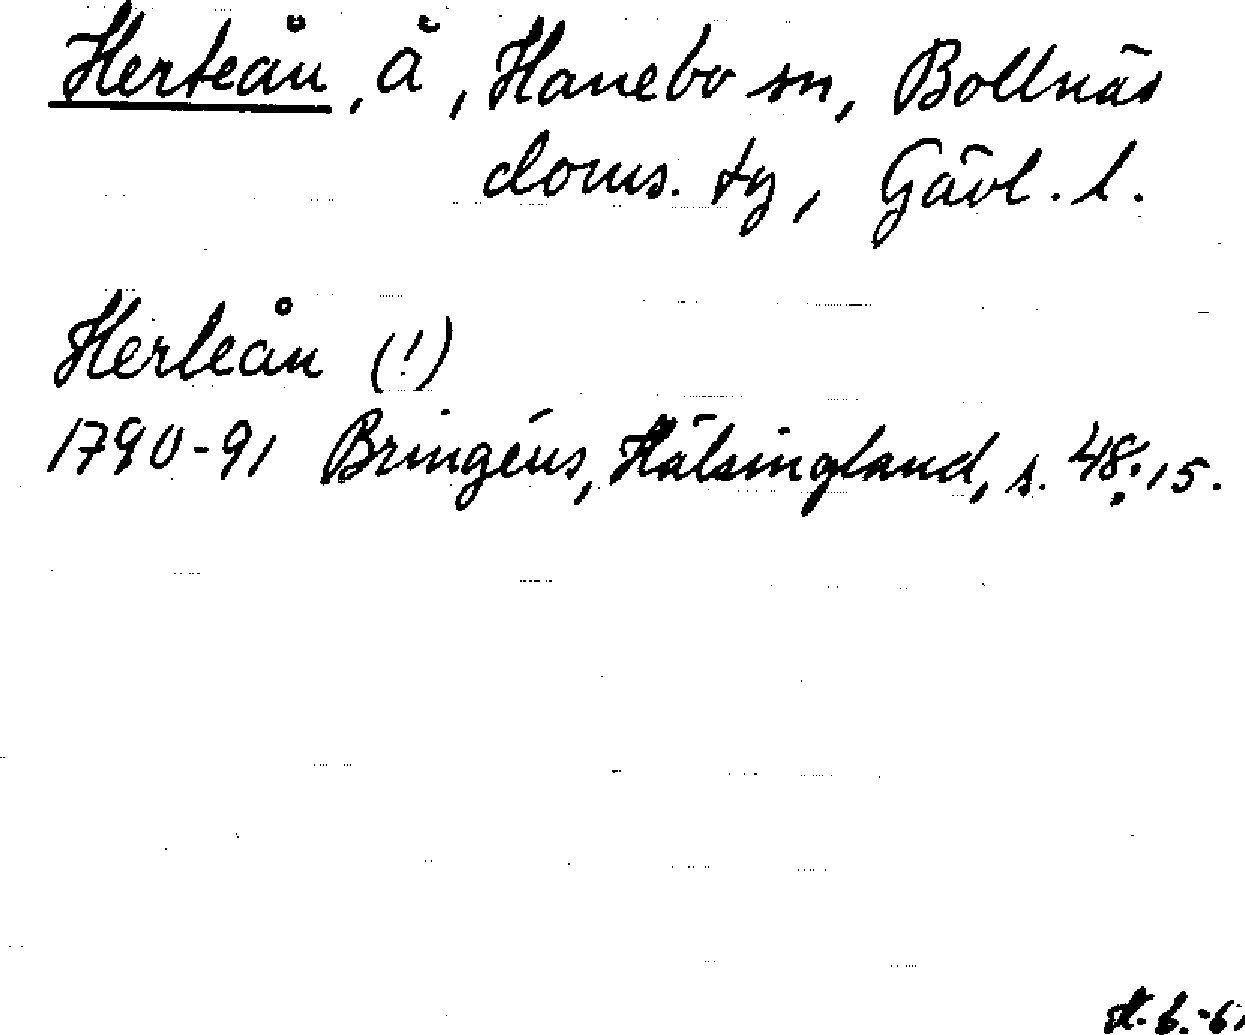 Herteån, å, Hanebo sn, Bollnäs
doms. tg, Gävl. l.
Herleån (!)
1790-91 Bringéus, Hälsingland, s. 48:15.